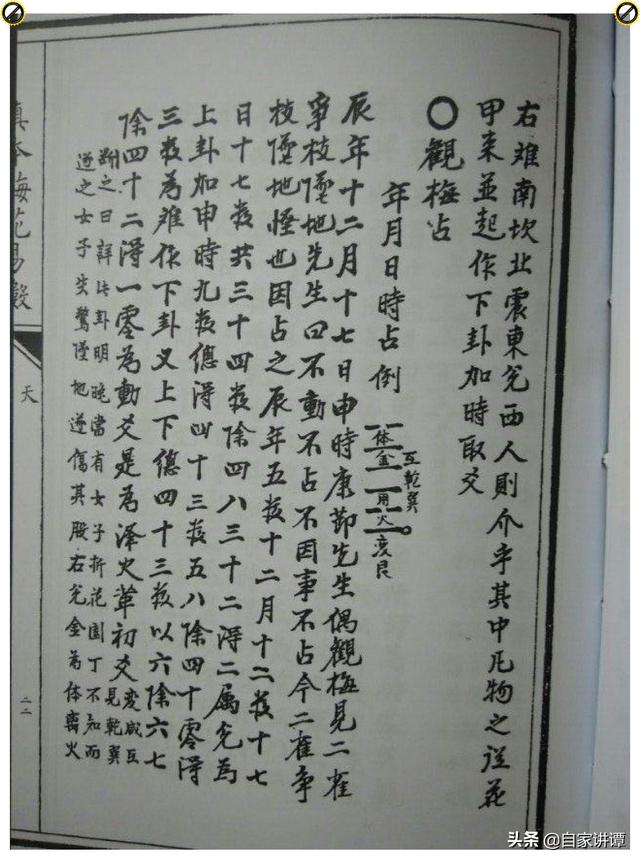 右难南坎北震東兊西人則介乎其中凡物之從花
甲来並起作下卦加時取爻
〇觀梅占
年月日時占例
互乾巽
体金
用火
变艮
辰年十二月十七日申時康節先生偶觀梅見二雀
爭枝墜地先生曰不動不占不因事不占今二雀争
枝墜地怪也因占之辰年五数十二月十二数十七
日十七数共三十四数除四八三十二得二属兊為
上卦加申時九数總得四十三数五八除四十零得
三数為难作下卦又上下總四十三数以六除六七
除四十二得一零為動爻是為澤火革初爻変咸互
見乾巽
断之曰詳此卦明晚當有女子折花園丁不知而
逐之女子失驚墜地遂傷其股右兊金為体离火
真本梅花易数
天
二二
头条@自家讲谭